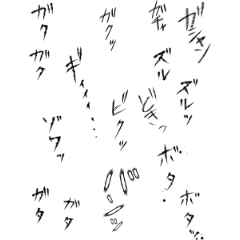 ガシャン
ガチャ
ガクッ
ガタガタ
ズルッ
ズル
どきっ
ギィィィ…
ビクッ
ゾワッ
ボタッ…
ボタ・
ガタ
ガタ